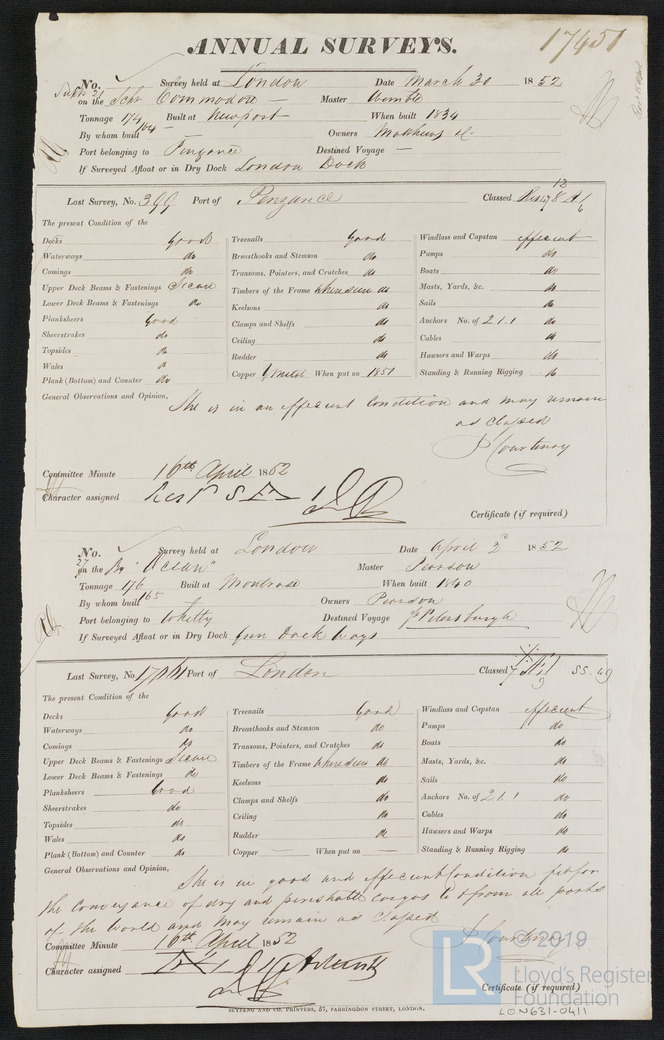 17451
ANNUAL SURVEYS.
No. Survey held at London Date March 30 1852
on the Schr Commodore — Master Wemble
Tonnage 174 Built at Newport When built 1834
By whom built 164 — Owners Matthews &c
Port belonging to Penzance Destined Voyage —
If Surveyed Afloat or in Dry Dock London Dock
Last Survey, No. 399 Port of Penzance Classed
The present Condition of the
Decks Good Treenails Good Windlass and Capstan effecient
Waterways do Breasthooks and Stemson do Pumps do
Comings do Transoms, Pointers, and Crutches do Boats do
Upper Deck Beams & Fastenings Secure Timbers of the Frame when seen do Masts, Yards, &c. do
Lower Deck Beams & Fastenings do Keelsons do Sails do
Planksheers Good Clamps and Shelfs do Anchors No. of 2.1.1 do
Sheerstrakes do Ceiling do Cables do
Topsides do Rudder do Hawsers and Warps do
Wales do Copper When put on 1851 Standing & Running Rigging do
Plank (Bottom) and Counter do
General Observations and Opinion, She is in an effecient Condition and may remain
as classed
J Courtenay
Committee Minute 16th April 1852
Character assigned
Certificate (if required)
No. Survey held at London Date April 2d 1852
27 on the Bg "Ocean" Master Pearson
Tonnage 176 Built at Montrose When built 1840
By whom built 165 Owners Pearson
Port belonging to Whitby Destined Voyage St Petersburgh
If Surveyed Afloat or in Dry Dock
Last Survey, No. Port of London Classed SS.49
The present Condition of the
Decks Good Treenails Good Windlass and Capstan effecient
Waterways do Breasthooks and Stemson do Pumps do
Comings do Transoms, Pointers, and Crutches do Boats do
Upper Deck Beams & Fastenings Secure Timbers of the Frame when seen do Masts, Yards, &c. do
Lower Deck Beams & Fastenings do Keelsons do Sails do
Planksheers Good Clamps and Shelfs do Anchors No. of 2.1.1 do
Sheerstrakes do Ceiling do Cables do
Topsides do Rudder do Hawsers and Warps do
Wales do Copper — When put on — Standing & Running Rigging do
Plank (Bottom) and Counter do
General Observations and Opinion, She is in good and effecient Condition fit for
the conveyance of dry and perishable cargos to & from all parts
of the World and may remain as classed
J Courtenay
Committee Minute 16th April 1852
Character assigned
Certificate (if required)
SEYFANG AND CO. PRINTERS, 57, FARRINGDON STREET, LONDON.
LR © 2019
Lloyd's Register
Foundation
LON631-0411